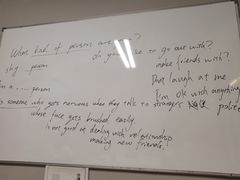 What kind of person are you?
do you like to go out with?
make friends with?
shy person
That laugh at me
I'm a .... person
I'm ok with anything
someone who gets nervous when they talk to strangers
polite
whose face gets brushed easily
is not good at dealing with relationship
making new friends!